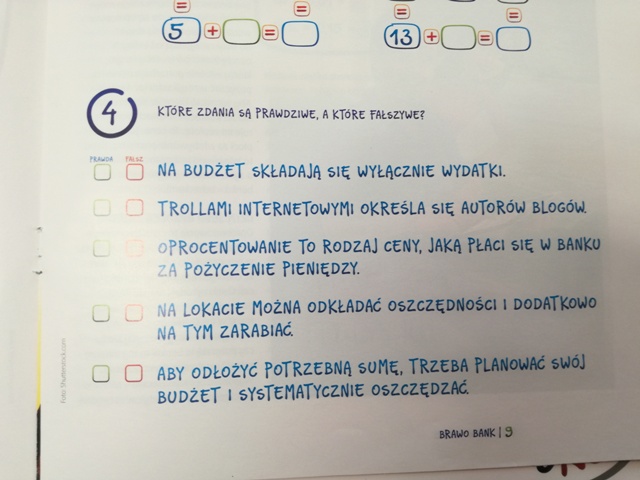 = = = =
5 + = 13 + =
4 KTÓRE ZDANIA SĄ PRAWDZIWE, A KTÓRE FAŁSZYWE?
PRAWDA FAŁSZ
NA BUDŻET SKŁADAJĄ SIĘ WYŁĄCZNIE WYDATKI.
TROLLAMI INTERNETOWYMI OKREŚLA SIĘ AUTORÓW BLOGÓW.
OPROCENTOWANIE TO RODZAJ CENY, JAKĄ PŁACI SIĘ W BANKU
ZA POŻYCZENIE PIENIĘDZY.
NA LOKACIE MOŻNA ODKŁADAĆ OSZCZĘDNOŚCI I DODATKOWO
NA TYM ZARABIAĆ.
ABY ODŁOŻYĆ POTRZEBNĄ SUMĘ, TRZEBA PLANOWAĆ SWÓJ
BUDŻET I SYSTEMATYCZNIE OSZCZĘDZAĆ.
Foto: Shutterstock.com
BRAWO BANK | 9